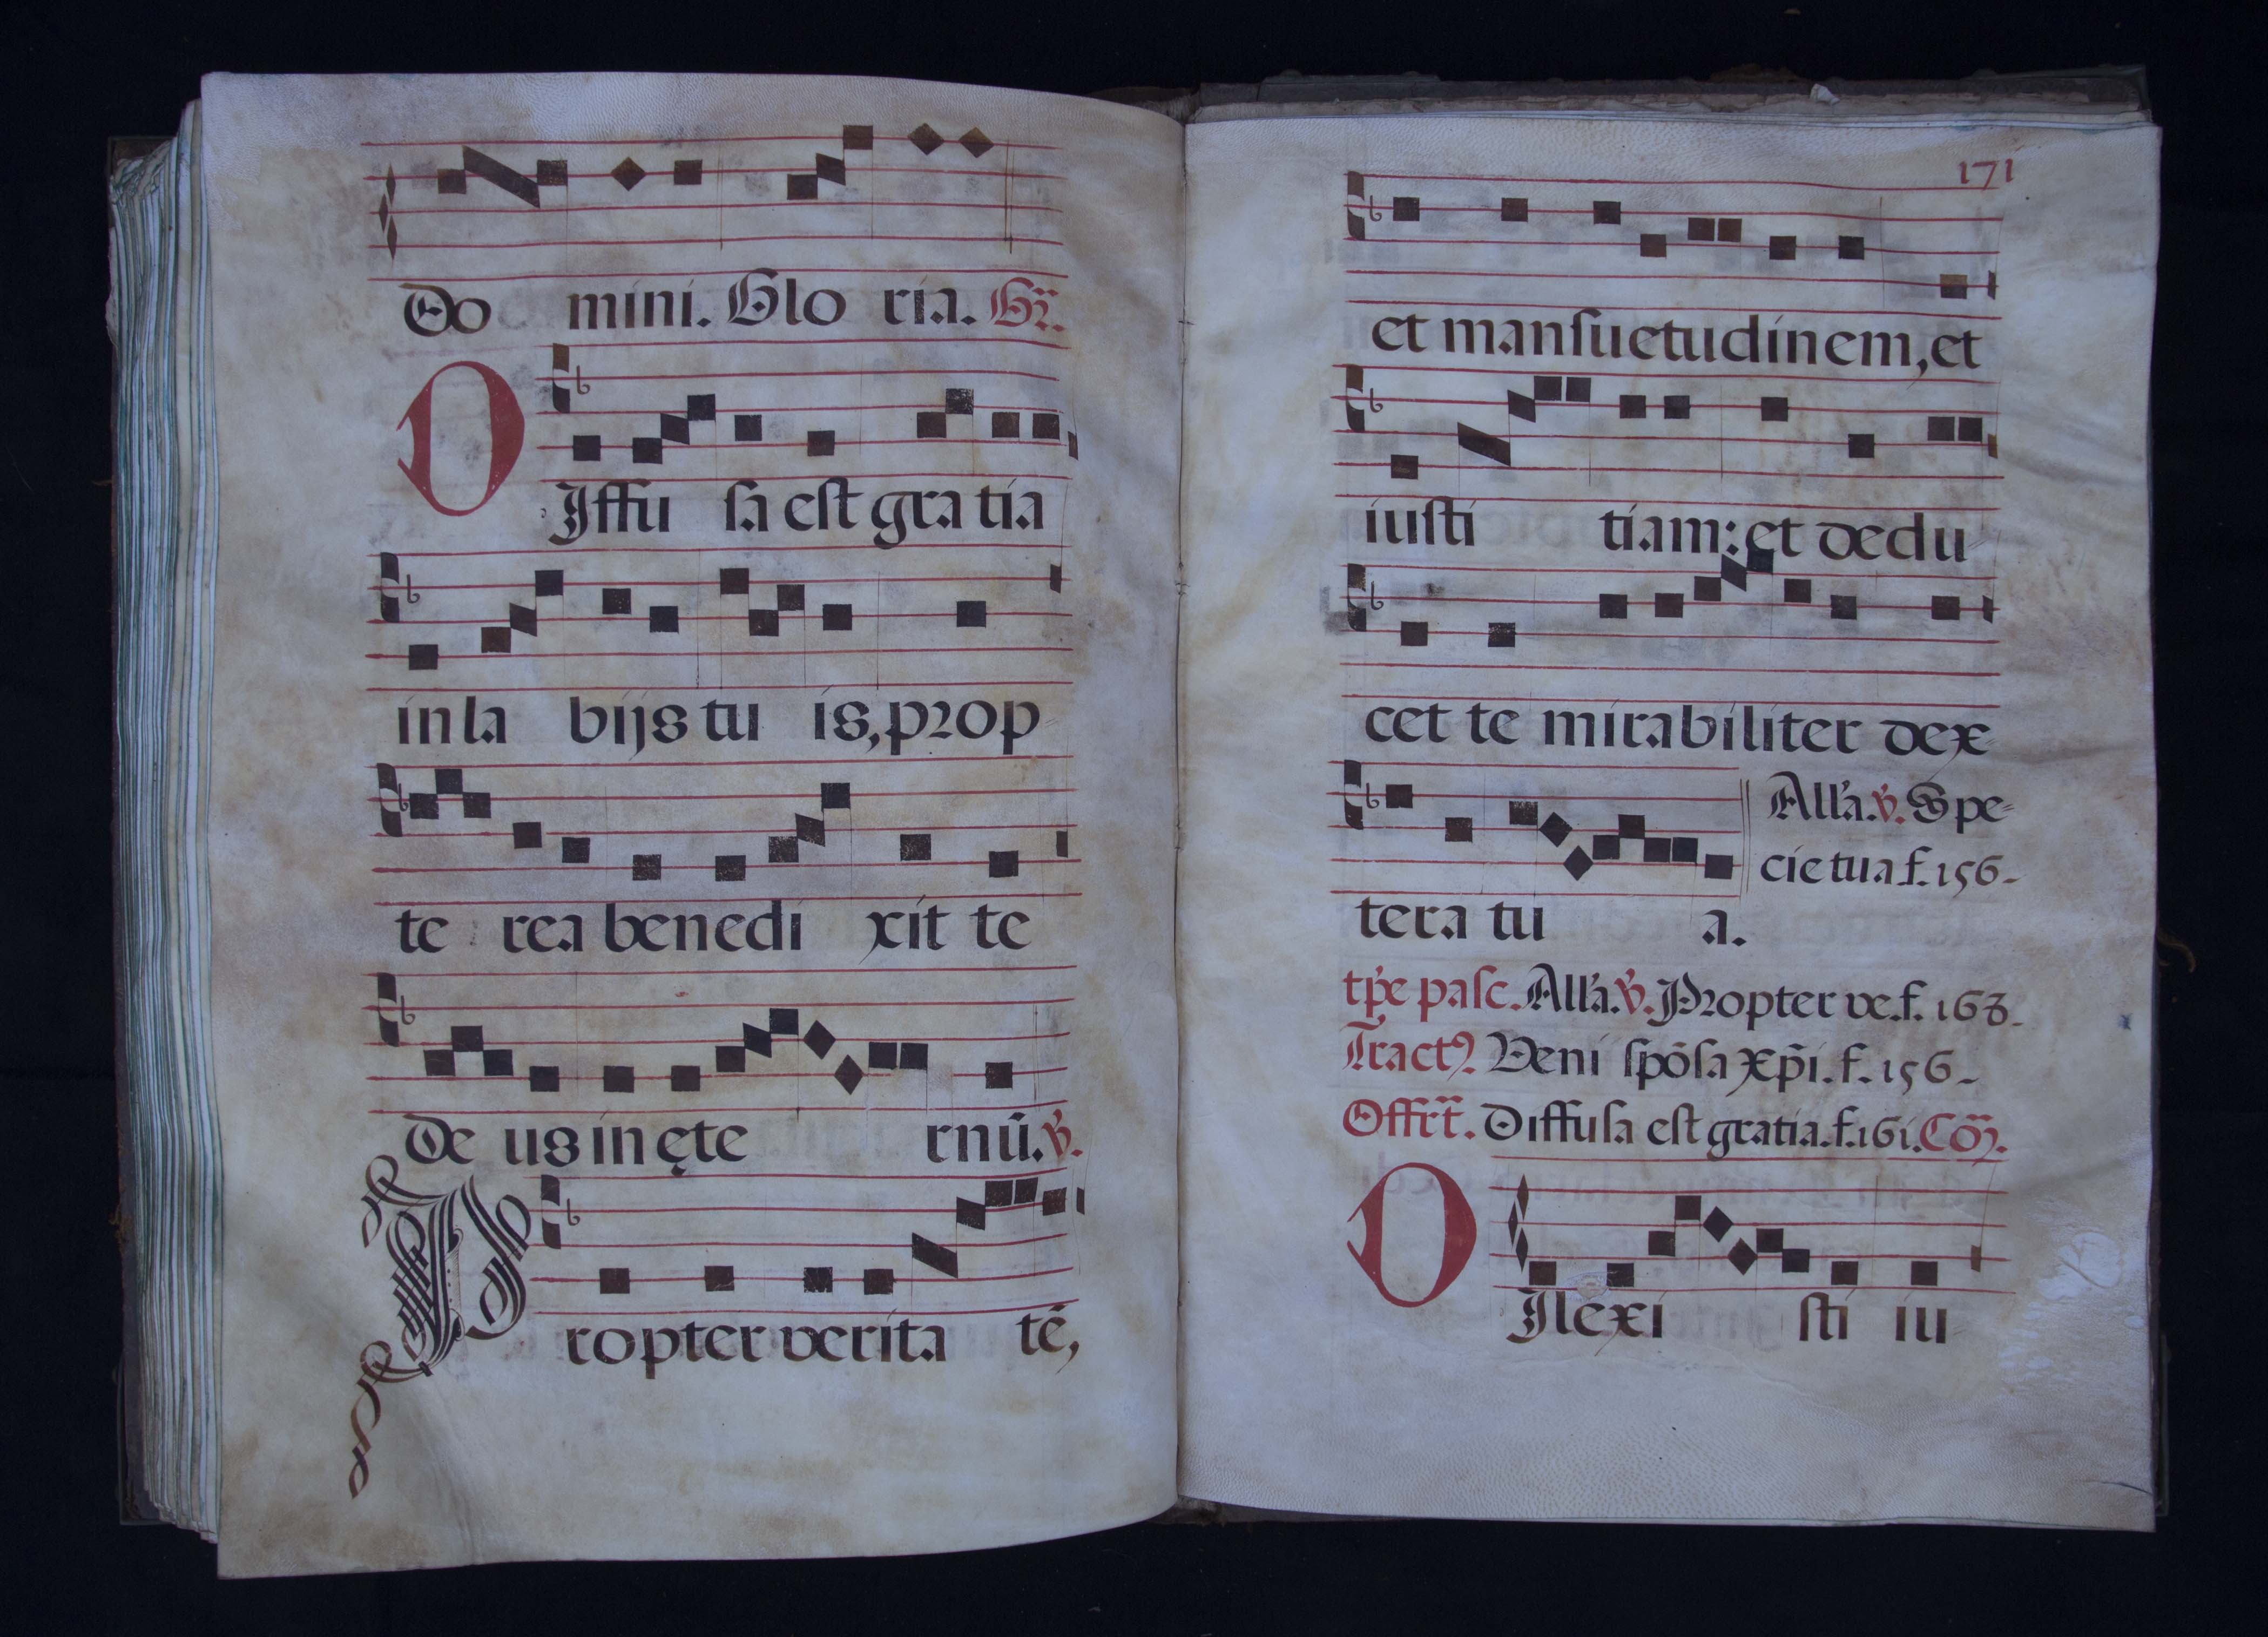 Do mini. Glo ria. Gr̃.
DIffu sa est gra tia
in la bijs tu is, prop
te rea benedi xit te
De us in ęte rnū. ℣.
Propter verita tē,
171
et mansuetudinem, et
iusti tiam: et dedu
cet te mirabiliter dex
tera tu a.
All'a. ℣. Spe-
cie tua f. 156.
tp̃e pasc. All'a. ℣. Propter ve. f. 168.
Tractꝰ. Veni spõsa xp̃i. f. 156.
Offrt̃. Diffusa est gratia. f. 161. Cõ.
DIlexi sti iu